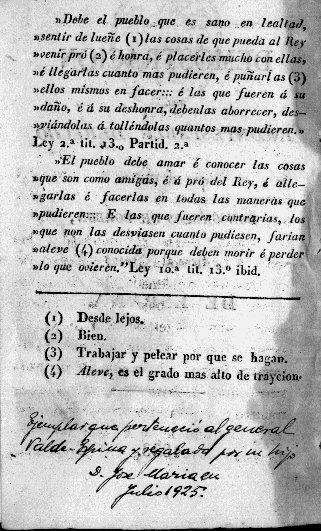 »Debe el pueblo que es sano en lealtad,
»sentir de lueñe (1) las cosas de que pueda al Rey
»venir pró (2) é honra, é placerles mucho con ellas,
»é llegarlas cuanto mas pudieren, é puñarlas (3)
»ellos mismos en facer::: é las que fueren á su
»daño, é á su deshonra, debenlas aborrecer, des-
»piándolas á tolléndolas quantos mas pudieren.»
Ley 2.ª tit. 13.o Partid. 2.ª
»El pueblo debe amar é conocer las cosas
»que son como amigas, é á pró del Rey, é alle-
»garlas é facerlas en todas las maneras que
»pudieren::: E las que fueren contrarias, los
»que non las desviasen cuanto pudiesen, farian
»aleve (4) conocida porque deben morir é perder
»lo que ovieren.”Ley 10.ª tit. 13.º ibid.
(1) Desde lejos.
(2) Bien.
(3) Trabajar y pelear por que se hagan.
(4) Aleve, es el grado mas alto de traycion.
Ejemplar que perteneció al general
Valde-Espina y regalado por su hijo
D. José Maria en
Julio 1925.